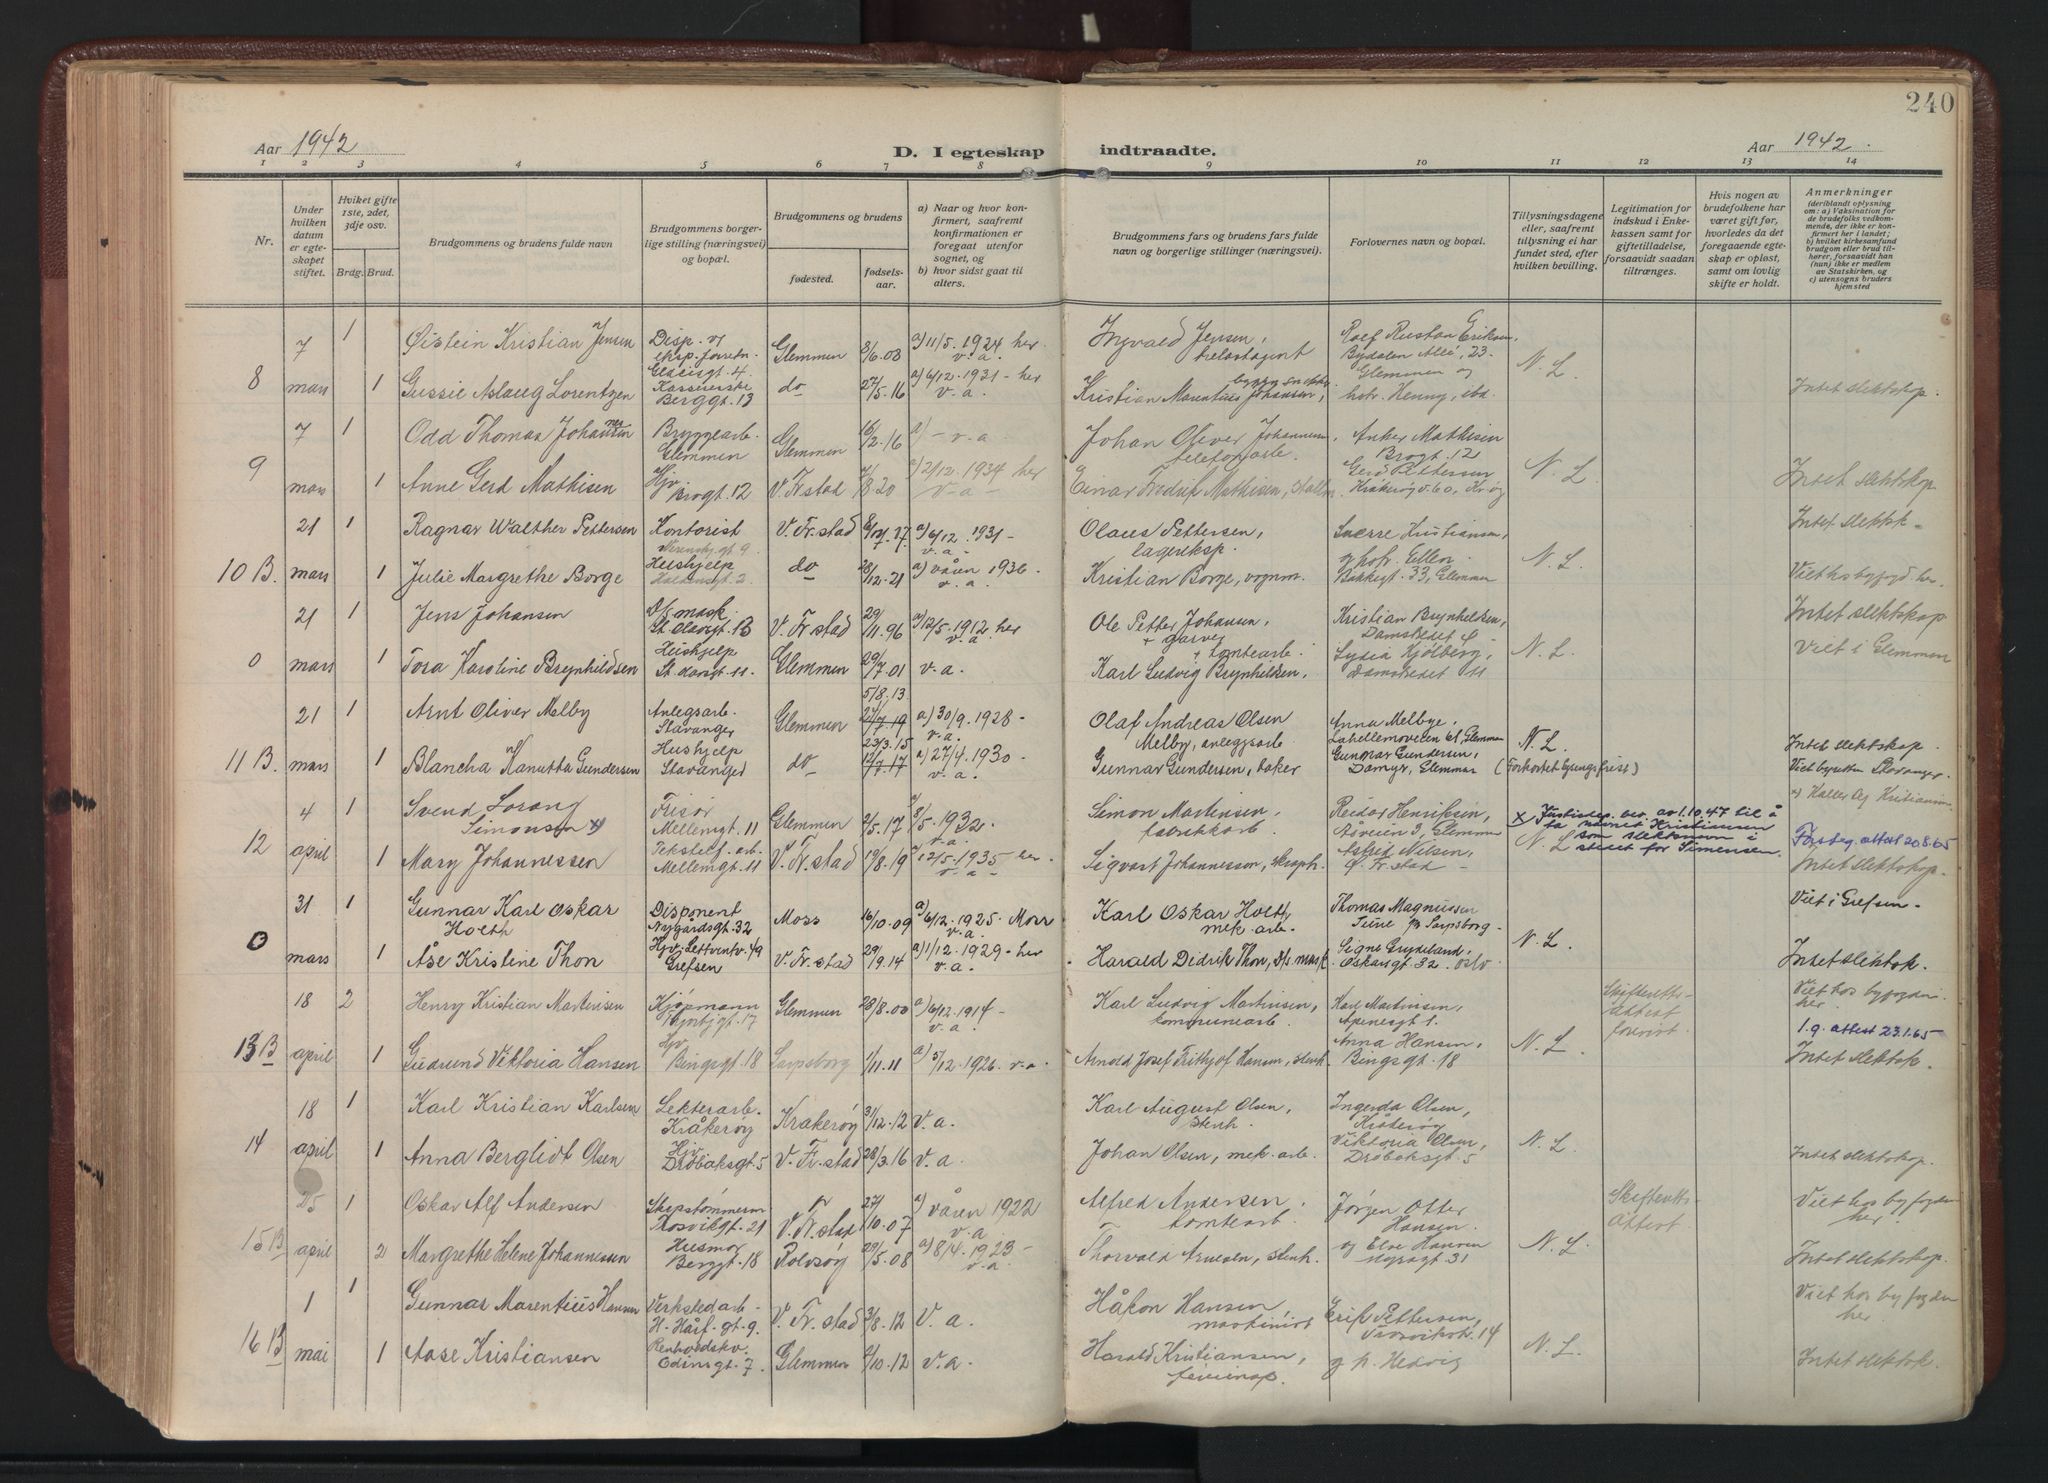 240
Aar 1942
D. I egteskap indtraadte.
Aar 1942.
1 2 3 4 5 6 7 8 9 10 11 12 13 14
Nr.
Under hvilken datum er egteskapet stiftet.
Hviket gifte 1ste, 2det, 3dje osv.
Brdg. Brud.
Brudgommens og brudens fulde navn
Brudgommens borgerlige stilling (næringsvei) og bopæl.
Brudgommens og brudens
fødested.
fødselsaar.
a) Naar og hvor konfirmert, saafremt konfirmationen er foregaat utenfor sognet, og
b) hvor sidst gaat til alters.
Brudgommens fars og brudens fars fulde navn og borgerlige stillinger (næringsvei).
Forlovernes navn og bopæl.
Tillysningsdagene eller, saafremt tillysning ei har fundet sted, efter hvilken bevilling.
Legitimation for indskud i Enkekassen samt for giftetilladelse, forsaavidt saadan tiltrænges.
Hvis nogen av brudefolkene har været gift før, hvorledes da det foregaaende egteskap er opløst, samt om lovlig skifte er holdt.
Anmerkninger (deriblandt oplysning om: a) Vaksination for de brudefolks vedkommende, der ikke er konfirmert her i landet; b) hvilket kirkesamfund brudgom eller brud tilhører, forsaavidt han (hun) ikke er medlem av Statskirken, og c) utensogns bruders hjemsted
7 1 Øistein Kristian Jensen Disp. og eksp. forretn. Glemmen 8/6.08 a) 11/5.1924 her v.a. Ingvald Jensen, Rolf Eriksen, Bydalen Allé, 23. Glemmen og N.L.
8 mars 1 Gussie Aslaug Lorentzen Berggt. 13 do 27/5.16 a) 6/12.1931 - her v.a. Kristian Marentius Johansen, hstr. Henny, ibd. Intet slektskap.
7 1 Odd Thomas Johannessen Bryggearb. Glemmen Glemmen 16/2.16 a) - v.a. Johan Oliver Johannessen, Anker Mathisen Brogt. 12
9 mars 1 Anne Gerd Mathisen Hjv. Brogt. 12 V. Fr.stad 7/8.20 a) 2/12.1934 her v.a. Einar Fredrik Mathisen, Gerd Pettersen N.L. Intet slektskap
21 1 Ragnar Walther Pettersen Kontorist V. Fr.stad a) 6/12.1931 - v.a. Olaus Pettersen, lagereksp. Sverre Kristiansen, Intet slektsk.
10 B. mars 1 Julie Margrethe Borge Heishjelp do 28/12.21 a) våren 1936. v.a. Kristian Borge, vognm. og hfr. Ellen Bakkegt. 33, Glemmen N.L. Viet hos byfogd. her
21 1 Jens Johansen St. Olavsgt. 13 V. Fr.stad 29/11.96 a) 12/5.1912 her v.a. Ole Petter Johansen, garver Kristian Brynhildsen, Intet slektskap
0 mars 1 Tora Karoline Brynhildsen Heishjelp Glemmen 29/7.01 v.a. Karl Ludvig Brynhildsen, tomtearb. Lydia Kjølberg, N.L. Viet i Glemmen
21 1 Arnt Oliver Melby Anlegsarb. Stavanger Glemmen 5/8.13 27/7.19 a) 30/9.1928 - v.a. Olaf Andreas Olsen Melby, anleggsarb. Anna Melbye, Lahellemoveien 61, Glemmen
11 B. mars 1 Blancha Kanutta Gundersen Hushjelp Stavanger do 23/3.15 12/7.17 a) 27/4.1930 - v.a. Gunnar Gundersen, baker Gunnar Gundersen, Damyr, Glemmen N.L. (Forkortet lysningsfrist) Intet slektskap Viet byretten Stavanger
4 1 Svend Lorang Simonsen x) Frisør Mellemgt. 11 Glemmen 2/5.17 a) 8/5.1932. v.a. Simon Martinsen, fabrikkarb. Reidar Henriksen, Glemmen x Justisdep. bev. av 1.10.47 til å ta navnet Kristiansen som slektsnavn i stedet for Simensen. x) Kaller seg Kristiansen
12 april 1 Mary Johannessen Tekstilf. arb. Mellemgt. 11 V. Fr.stad 19/8.19 a) 12/5.1935 - her v.a. Sigvart Johannesson, Astrid Nilsen, Ø. Fr.stad N.L. attest 20.8.65 Intet slektskap.
31 1 Gunnar Karl Oskar Holth Disponent Nygårdsgt. 32 Moss 16/10.09 a) 6/12.1925. Moss v.a. Karl Oskar Holth, mek. arb. Thomas Magnussen Tune pr Sarpsborg Viet i Grefsen.
0 mars 1 Åse Kristine Thon Hjv. Grefsen V. Fr.stad 29/9.14 a) 1/12.1929 - her v.a. Harald Didrik Thon, Signe Grydeland, Oskarsgt. 32. Oslo N.L. Intet slektsk.
18 2 Henry Kristian Martinsen Kjøpmann Glemmen 28/8.00 a) 6/12.1914 - v.a. Karl Ludvig Martinsen, kommunearb. Karl Martinsen, Apenesgt 1. Skifteretts-attest forevist. Viet hos byfogden her.
13 B april 1 Gudrund Viktoria Hansen Hjv. Bingsgt. 18 Sarpsborg 1/11.11 a) 5/12.1926. v.a. Arnold Josef Frithjof Hansen, stenh. Anna Hansen, Bingsgt. 18 N.L. 1.g. attest 23.1.65 Intet slektsk.
18 1 Karl Kristian Karlsen Lekterarb. Kråkerøy Krakerøy 31/12.12 v.a. Karl August Olsen, stenh. Ingerda Olsen,
14 april 1 Anna Berglidt Olsen Hjv. Drøbaksgt. 5 V. Fr.stad 28/3.16 v.a. Johan Olsen, mek. arb. Viktoria Olsen, Drøbaksgt 5 N.L. Intet slektskap.
25 1 Oskar Alf Andersen Skipstømmerm Mosvikgt. 21 V. Fr.stad 27/10.07 a) våren 1922 v.a. Alfred Andersen, tomtearb. Jørgen Otter Hansen. Skifteretts-attest Viet hos byfogden her.
15 B april 2 Margrethe Helene Johannessen Husmor Berggt. 18 Rolvsøy 29/5.08 a) 8/4.1923 - v.a. Thorvald Arnesen, stenh. og Elve Hansen N.L. Intet slektskap.
1 1 Gunnar Marentius Hansen Verkstedarb - H. Hårf. gt. 9. V. Fr.stad 31/8.12 v.a. Håkon Hansen, maskinist Erik Pettersen, Viet hos byfogden her
16 B mai 1 Aase Kristiansen Odinsgt. 7 Glemmen 2/10.12 v.a. Harald Kristiansen, og h. Hedvig N.L. Intet slektsk.